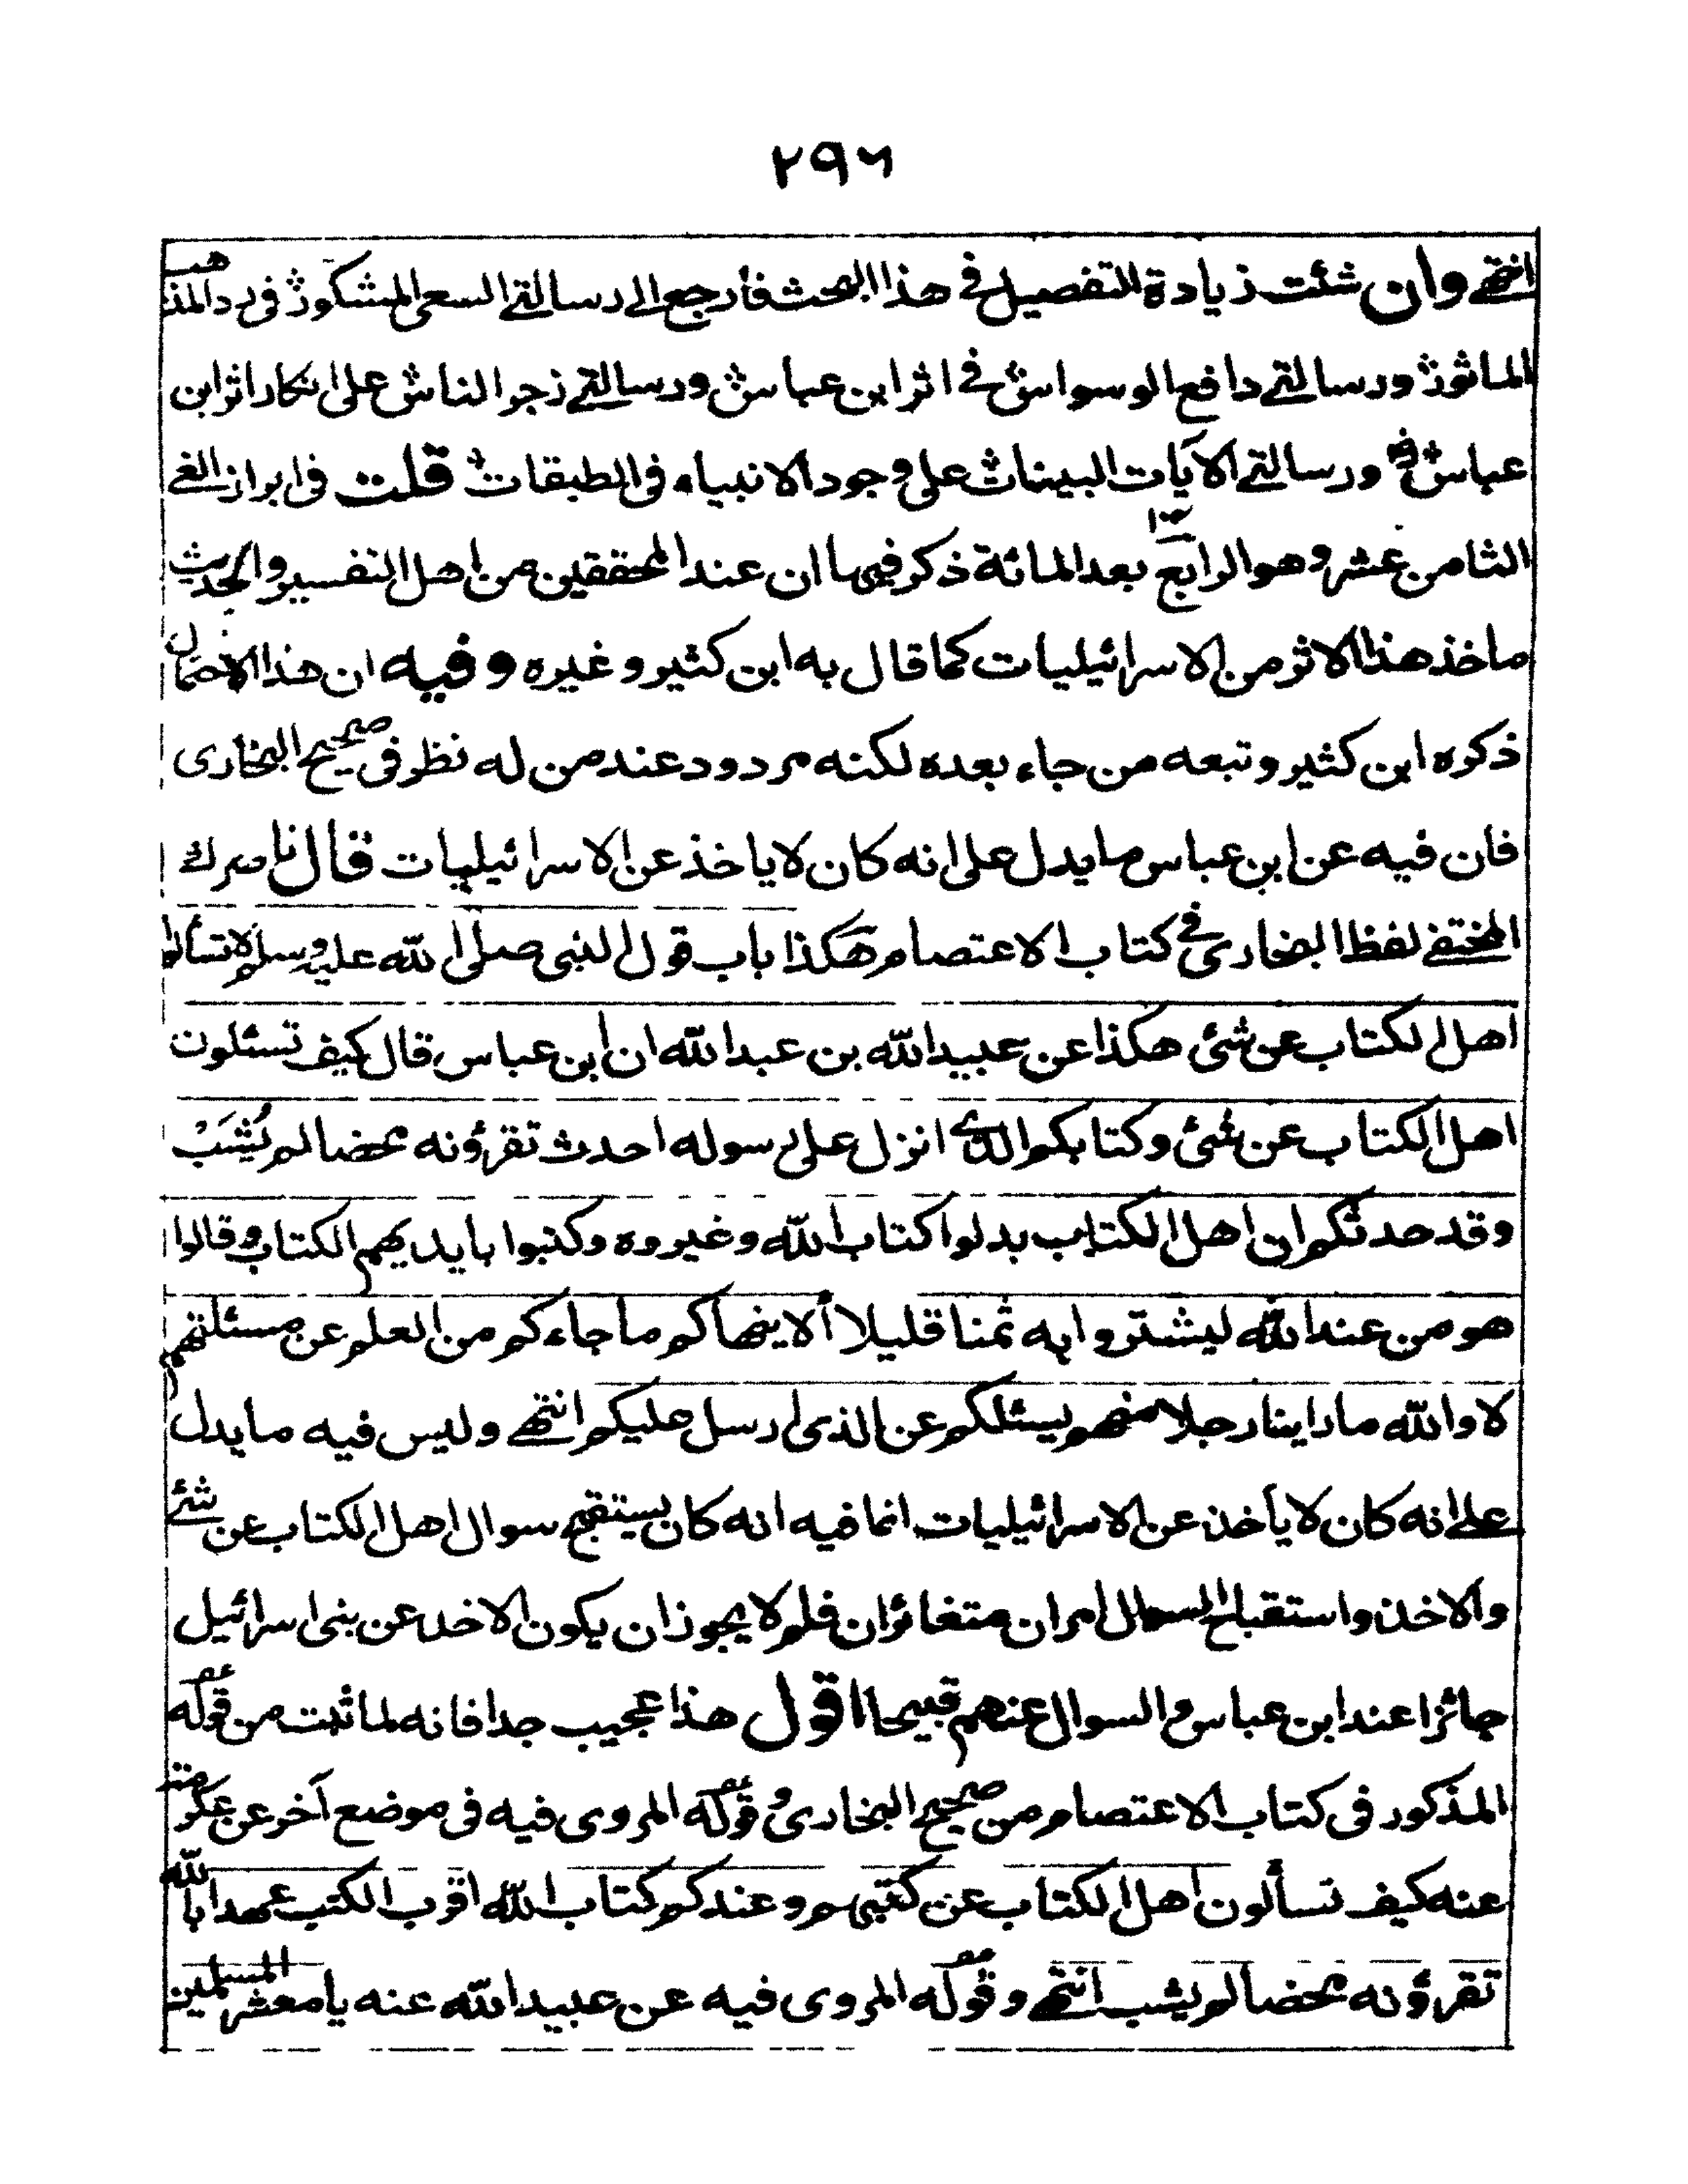 ٢٩٦
انتهى وان شئت زيادة التفصيل في هذا البحث فارجع الى رسالتي السعي المشكور في رد المذهب
الماثور ورسالتي دافع الوسواس في اثر ابن عباس ورسالتي زجر الناس على انكار اثر ابن
عباس رض ورسالتي الآيات البينات على وجود الانبياء في الطبقات قلت في ابراز الغي
الثامن عشر وهو الرابع عشر بعد المائة ذكر فيها ان عند المحققين من اهل التفسير والحديث
ماخذ هذا الاثر من الاسرائيليات كما قال به ابن كثير وغيره وفيه ان هذا الاحتمال
ذكره ابن كثير وتبعه من جاء بعده لكنه مردود عند من له نظر في صحيح البخاري
فان فيه عن ابن عباس ما يدل على انه كان لا ياخذ عن الاسرائيليات قال ناصرك
المختفي لفظ البخاري في كتاب الاعتصام هكذا باب قول النبي صلى الله عليه وسلم لا تسألوا
اهل الكتاب عن شئ هكذا عن عبيد الله بن عبد الله ان ابن عباس قال كيف تسئلون
اهل الكتاب عن شئ وكتابكم الذي انزل على رسوله احدث تقرؤنه محضا لم يُشَبْ
وقد حدثكم ان اهل الكتاب بدلوا كتاب الله وغيروه وكتبوا بايديهم الكتاب وقالوا
هو من عند الله ليشتروا به ثمنا قليلا ألا ينهاكم ما جاءكم من العلم عن مسئلتهم
لا والله ما راينا رجلا منهم يسئلكم عن الذي ارسل عليكم انتهى وليس فيه ما يدل
على انه كان لا يأخذ عن الاسرائيليات انما فيه انه كان يستقبح سوال اهل الكتاب عن شئ
والاخذ واستقباح السوال امران متغائران فلم لا يجوز ان يكون الاخذ عن بني اسرائيل
جائزا عند ابن عباس والسوال عنهم قبيحا اقول هذا عجيب جدا فانه لما ثبت من قوله
المذكور في كتاب الاعتصام من صحيح البخاري وقوله المروي فيه في موضع آخر عن عكرمة
عنه كيف تسألون اهل الكتاب عن كتبهم وعندكم كتاب الله اقرب الكتب عهدا بالله
تقرؤنه محضا لم يشب انتهى وقوله المروي فيه عن عبيد الله عنه يا معشر المسلمين